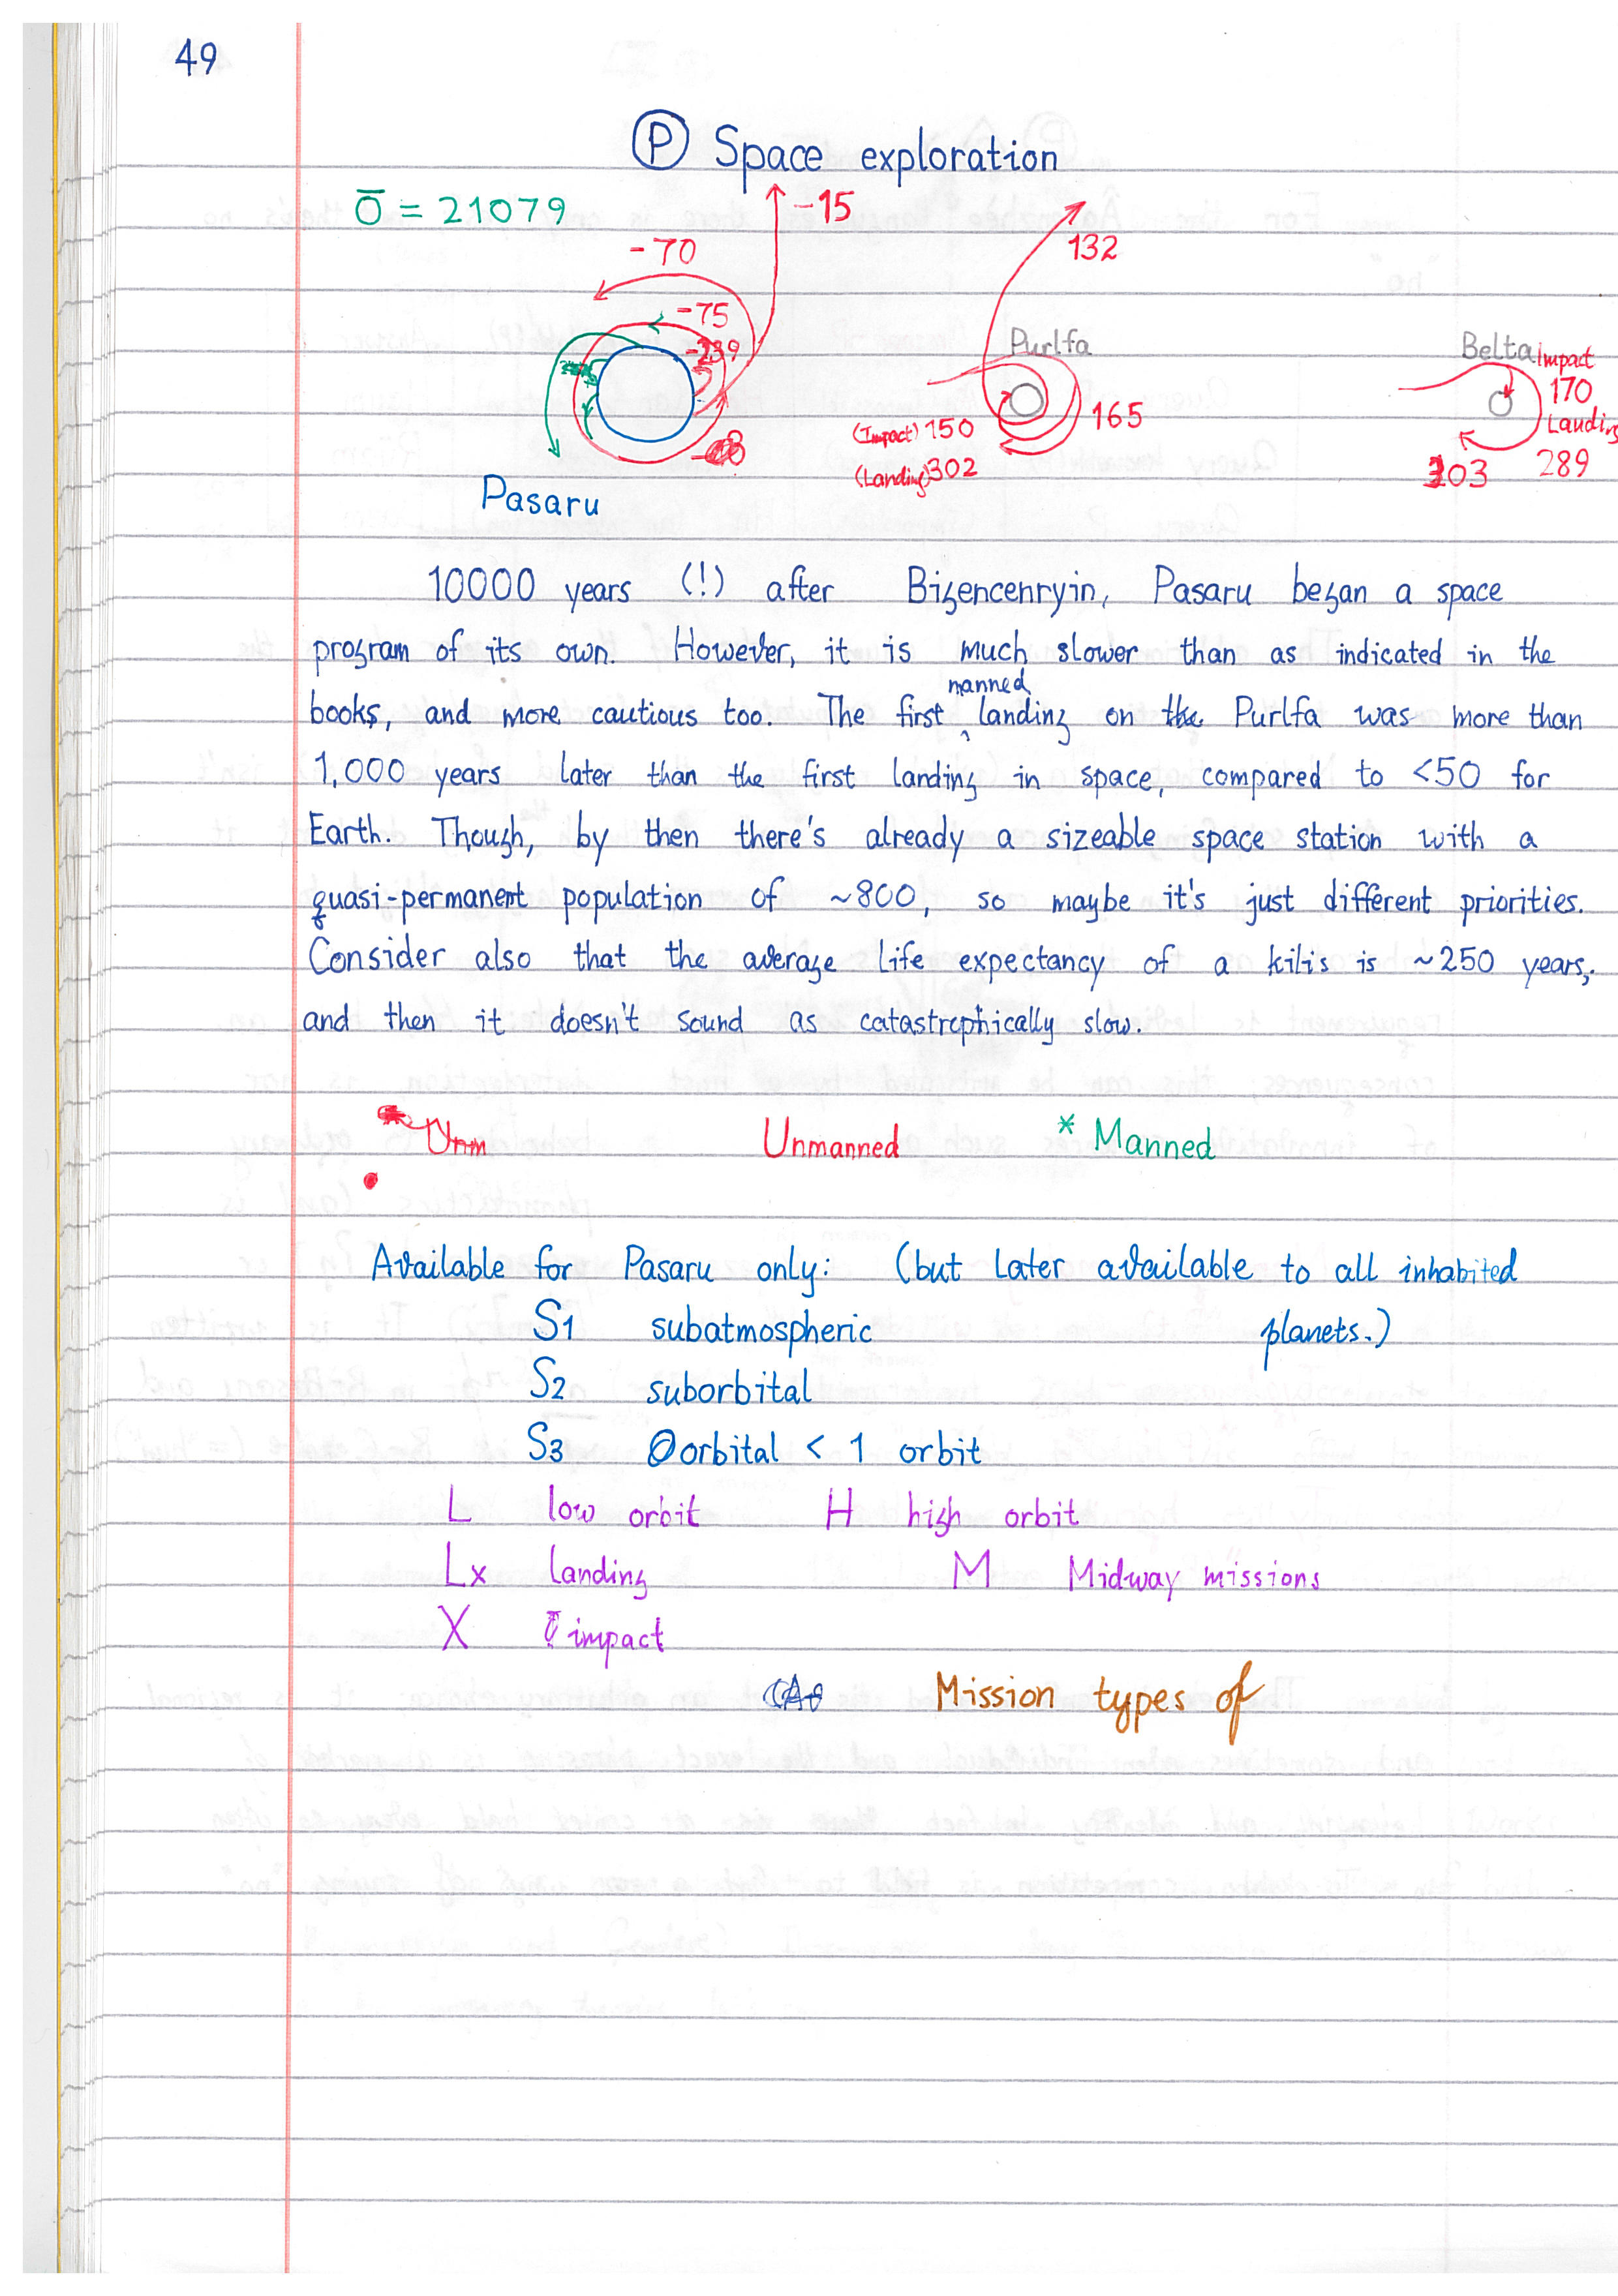 49
Ⓟ Space exploration
Ō = 21079
-15
-70
132
-75
Purlfa
Belta
Impact
170
Landing
289
103
165
(Impact) 150
(Landing) 302
Pasaru
10000 years (!) after Bizencenryin, Pasaru began a space
program of its own. However, it is much slower than as indicated in the
books, and more cautious too. The first manned landing on the Purlfa was more than
1,000 years later than the first landing in space, compared to <50 for
Earth. Though, by then there's already a sizeable space station with a
quasi-permanent population of ~800, so maybe it's just different priorities.
Consider also that the average life expectancy of a kilis is ~250 years,
and then it doesn't sound as catastrophically slow.
Unmanned * Manned
Available for Pasaru only: (but later available to all inhabited
planets.)
S1 subatmospheric
S2 suborbital
S3 orbital < 1 orbit
L low orbit H high orbit
Lx landing M Midway missions
X impact
Mission types of